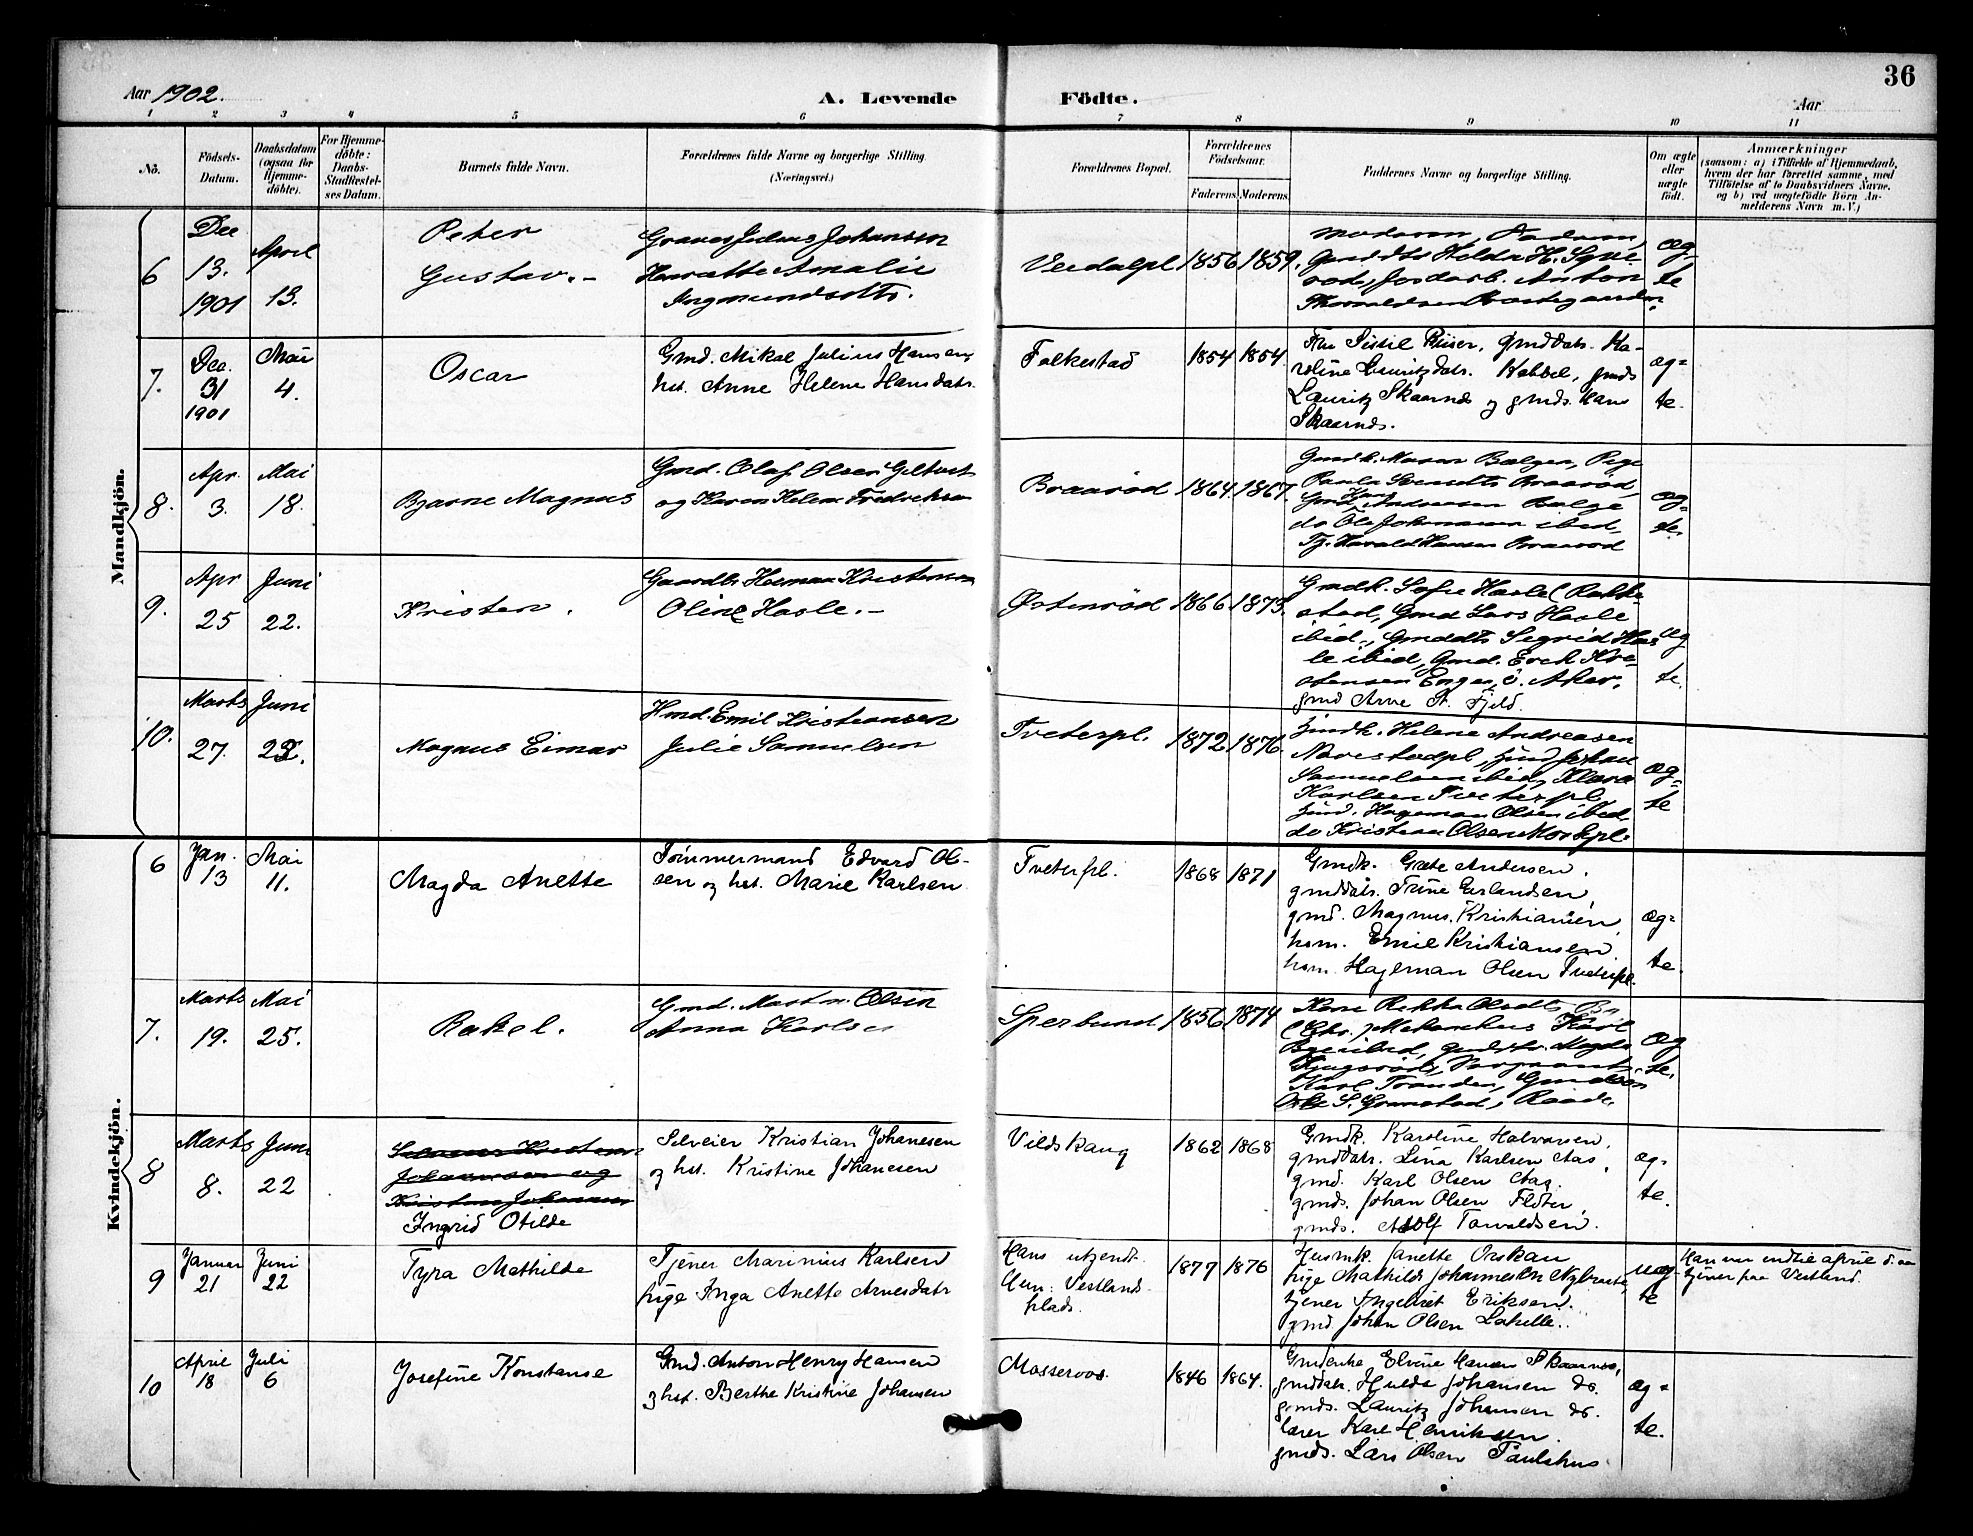 36
Aar 1902.
A. Levende Födte.
Aar
1 2 3 4 5 6 7 8 9 10 11
No.
Födsels-Datum.
Daabsdatum (ogsaa for Hjemme-döbte).
For Hjemme-döbte: Daabs-Stadfæstel-ses Datum.
Barnets fulde Navn.
Forældrenes fulde Navne og borgerlige Stilling. (Næringsvei.)
Forældrenes Bopæl.
Forældrenes Födselsaar.
Faderens. Moderens.
Faddernes Navne og borgerlige Stilling.
Om ægte eller uægte födt.
Anmærkninger
(saasom: a) i Tilfælde af Hjemmedaab,
hvem der har forrettet samme, med
Tilföielse af to Daabsvidners Navne,
og b) ved uægtefödte Börn An-
melderens Navn m. V.)
Mandkjön.
6
Dec
13.
1901
April
13.
Peter
Gustav. -
Johansen
Amalie
Veidalpl
1856 1859.
Moderen, Faderen,
Anton
æg-
te
7.
Dec.
31
1901
Mai
4.
Oscar
Gmd. Mikal Julius Hansen,
hst. Anne Helene Hansdatr.
Falkestad
1854 1854.
Lauritz Skaarnds og gmds. Hans
Skaarnds.
æg=
te.
8.
Apr.
3.
Mai
18.
Bjarne Magnus
Gmd. Olaf Olsen
og Karen Helene Fredriksen
Braarød
1864. 1867.
do Ole Johannesen ibid.
Tj. Harald Hansen Braarød
æg=
te.
9.
Apr
25
Juni
22.
Kristen.
Gaardbr. Herman Kristensen
Oline Hasle. -
Østenrød
1866. 1873.
Gmdk. Sofie Hasle (Rakke-
stad, Gmd Lars Hasle
ibid., Gmddtr Sigrid Has
le ibid, Gmd. Erik Kri-
stensen Enger, ö. Aker,
gmd Arne A. Fjeld.
æg
te.
10.
Marts
27.
Juni
22.
Magnus Eimar
Hmd. Emil Kristiansen
Julie Samuelsen
Tveterpl.
1872 1876.
Helene Andreasen
Johan
Samuelsen ibid, Klara
Karlsen Tveterpl,
Hageman Olsen ibid
do Kristian Olsen
æg=
te
Kvindekjön.
6
Jan.
13
Mai
11.
Magda Anette
Tømmermand Edvard Ol-
sen og hst. Marie Karlsen.
Tveterpl.
1868 1871
Gmdk. Grete Andersen,
gmddatr. Trine Erlandsen,
gmd. Magnus Kristiansen,
hsm. Emil Kristiansen,
hsm. Hageman Olsen Tveterpl.
æg=
te.
7.
Marts
19.
Mai
25.
Rakel.
Gmd. Martin Olsen
Anna Karlsen
Sperbund
1856. 1874
Karl
æg
te.
8
Marts
8.
Juni
22
Johannsen og
Ingrid Otilde
Selveier Kristian Johanesen
og hst. Kristine Johanesen
Vildskaug
1862 1868
Gmdk. Karoline Halvorsen,
gmddatr. Lina Karlsen Aas,
gmd. Karl Olsen Aas.
gmds. Johan Olsen Fløter,
gmds. Adolf Torvaldsen.
æg=
te.
9
Januar
21
Juni
22
Tyra Mathilde
Tjener Marinius Karlsen
pige Inga Anette Arnesdatr
Hans ukjendt.
Hun: Vestlands-
plads.
1877 1876
Husmk. Janette Orskau
pige Mathilde Johannesen
tjener Ingebret Eriksen.
gmd. Johan Olsen
uæg-
te
Han var indtil april d. aa
tjener paa Vestland.
10
April
18
Juli
6
Josefine Konstanse
Gmd. Anton Henry Hansen
og hst. Berthe Kristine Johansen
Mosseroos.
1846 1864.
Gmdenke Elvine Hansen Skaarnes,
gmddatr. Hulda Johansen ds.
gmds. Lauritz Johansen ds.
lærer Karl Henriksen.
gmds. Lars Olsen Paulshus.
æg=
te.